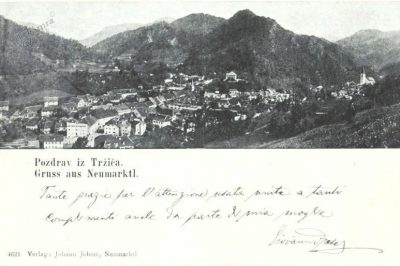 Pozdrav iz Tržiča.
Gruss aus Neumarktl.
Tante grazie per l'attenzione usata unite a tanti
complimenti anche da parte di mia moglie
Giovanni
4621 Verlag: Johann Neumarktl